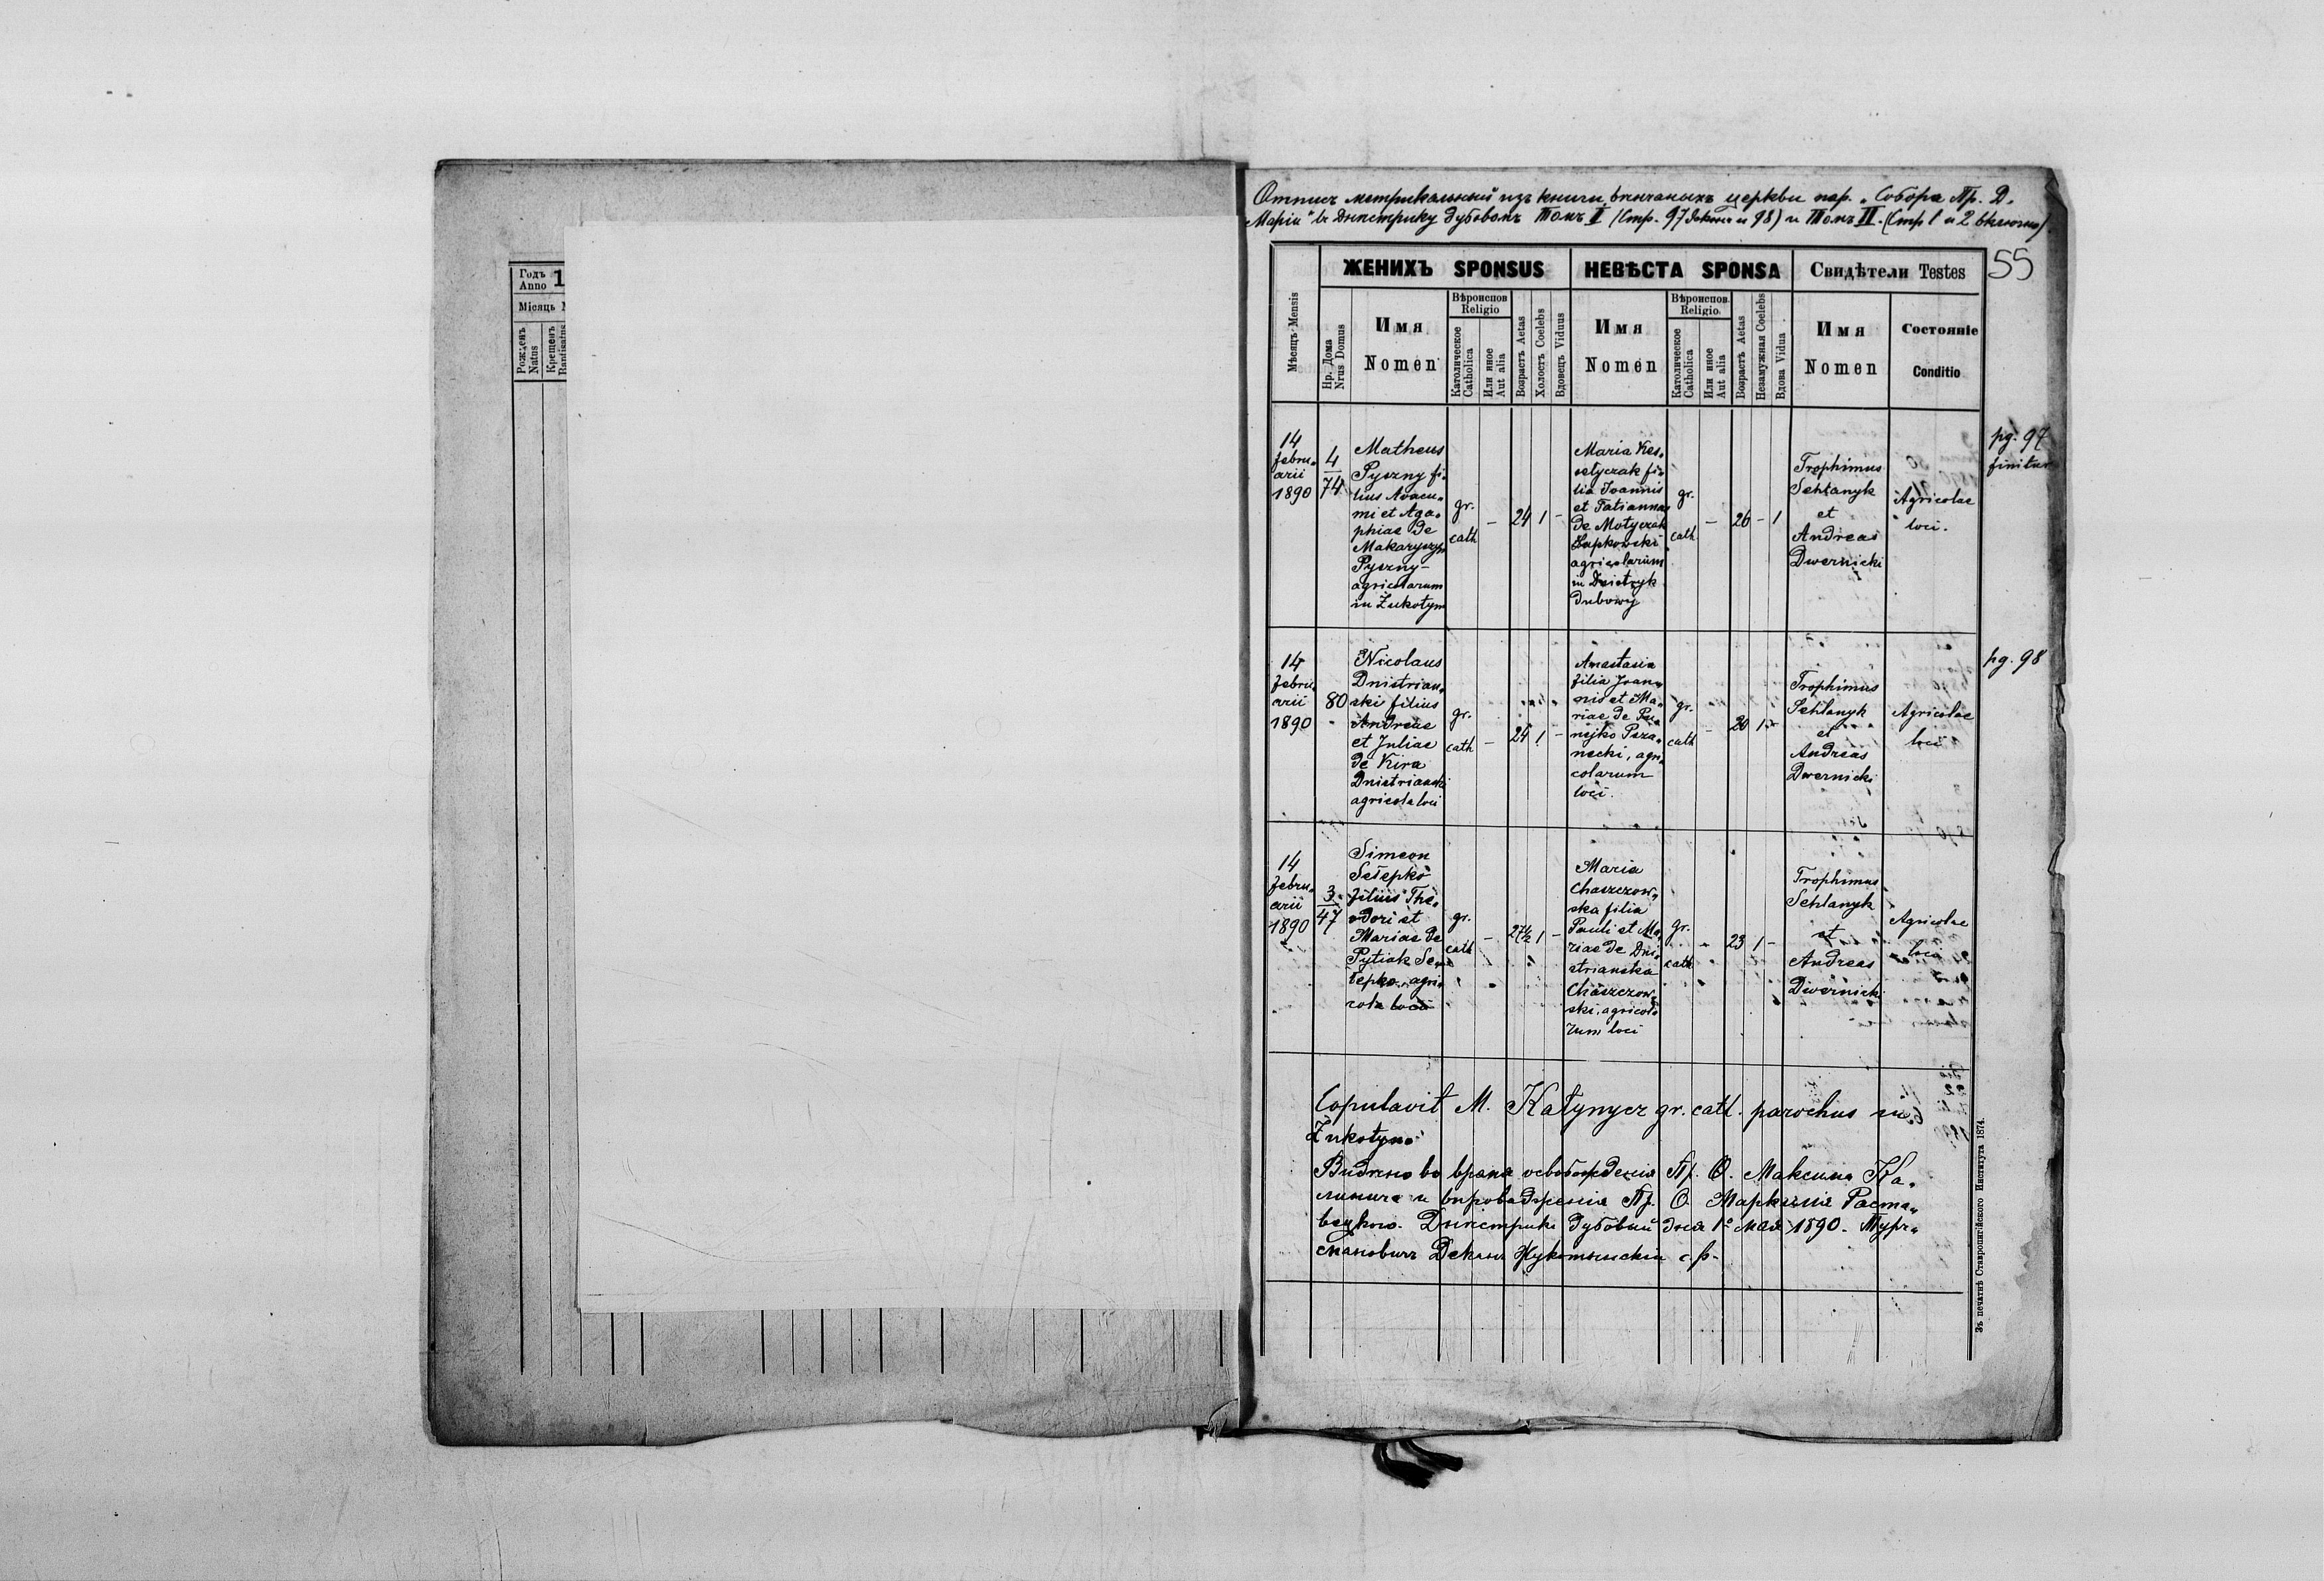 Отпись метрикальный изъ книги вѣнчаныхъ церкви пар. „Собора Пр. Д.
Маріи" въ Днѣстрику дубовомъ Томъ I (Стр. 97 и 98) и Томъ II. (Стр 1 и 2 включно)
55
Годъ
Anno 1
Місяць
Рожденъ
Natus
Крещенъ
ЖЕНИХЪ SPONSUS
НЕВѢСТА SPONSA
Свидѣтели Testes
Мѣсяцъ Mensis
Нр. Дома
Nrus Domus
Имя
Nomen
Вѣроиспов
Religio
Католическое
Catholica
Или иное
Aut alia
Возрастъ Aetas
Холостъ Coelebs
Вдовецъ Viduus
Имя
Nomen
Вѣроиспов.
Religio.
Католическое
Catholica
Или иное
Aut alia
Возрастъ Aetas
Незамужная Coelebs
Вдова Vidua
Имя
Nomen
Состояніе
Conditio
14
febru„
arii
1890
4
74
Matheus
Pyszny fi„
lius Avacu„
mi et Aga„
phiae de
Makaryszyn
Pyszny-
agricolarum
in Żukotyn
gr.
cath
-
24
1
-
Maria Kes„
setyczak fi„
lia Joannis
et Tatiannae
de Motyczak
Łupkowski
agricolarum
in Dniestryk
Dubowy
gr.
cath
-
26
-
1
Trophimus
Sehlanyk
et
Andreas
Dwernicki
Agricolae
loci.
pg. 97
finitur
14
febru„
arii
1890
80
Nicolaus
Dnistrian„
ski filius
Andreae
et Juliae
de Kira
Dnistrianski
agricola loci
gr.
cath
-
24
1
-
Anastasia
filia Joan„
nis et Ma„
riae de
nejko Psza„
necki, agri„
colarum
loci.
gr.
cath
-
20
1
-
Trophimus
Sehlanyk
et
Andreas
Dwernicki
Agricolae
loci
pg. 98
14
febru„
arii
1890
3
47
Simeon
Seiepko
filius The„
odori et
Mariae de
Pytiak Se„
iepko, agri„
cola loci
gr.
cath
-
27½
1
-
Maria
Chaszczow„
ska filia
Pauli et Ma„
riae de Dni„
strianska
Chaszczow„
ski, agricola„
rum loci
gr.
cath
-
23
1
-
Trophimus
Sehlanyk
et
Andreas
Dwernicki
Agricolae
loci
Copulavit M. Kałynycz gr. cath. parochus in
Żukotyn
Видѣно во время освобожденія Пр. О. Максима Ка„
линича и впровадженія Пр. О. Маркелія Раста„
вецкого. Днѣстрикъ дубовый дня 1о мая 1890. Турч„
мановичъ Деканъ Жукотинскій с. р.
Зъ печатнѣ Ставропигійского Института 1874.